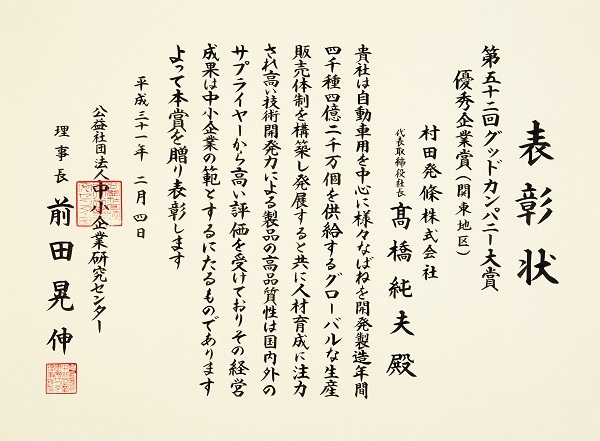 表彰状
第五十二回グッドカンパニー大賞
優秀企業賞(関東地区)
村田発條株式会社
代表取締役社長 髙橋純夫殿
貴社は自動車用を中心に様々なばねを開発製造年間
四千種四億二千万個を供給するグローバルな生産
販売体制を構築し発展すると共に人材育成に注力
され高い技術開発力による製品の高品質性は国内外の
サプライヤーから高い評価を受けておりその経営
成果は中小企業の範とするにたるものであります
よって本賞を贈り表彰します
平成三十一年 二月四日
公益社団法人中小企業研究センター
理事長 前田晃伸